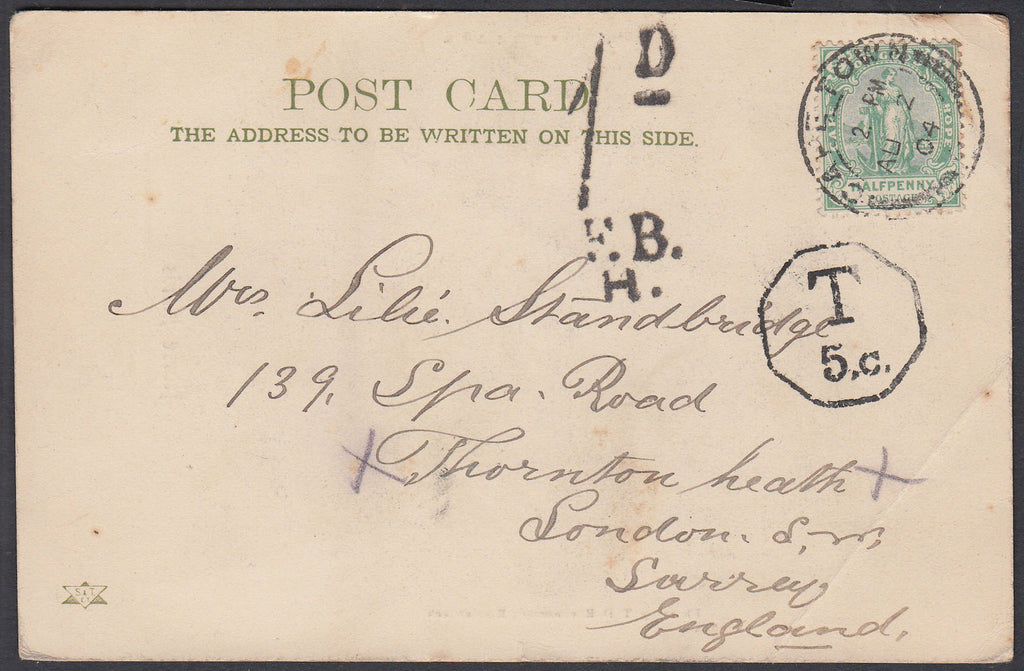 POST CARD
THE ADDRESS TO BE WRITTEN ON THIS SIDE.
1 D
F.B.
H.
CAPE TOWN
2 PM
AU 2
04
HOPE
HALFPENNY
POSTAGE
T
5.c.
Mrs. Lilie. Standbridge
139. Spa. Road
X Thornton heath X
London. S.W.
Surrey
England.
S & T